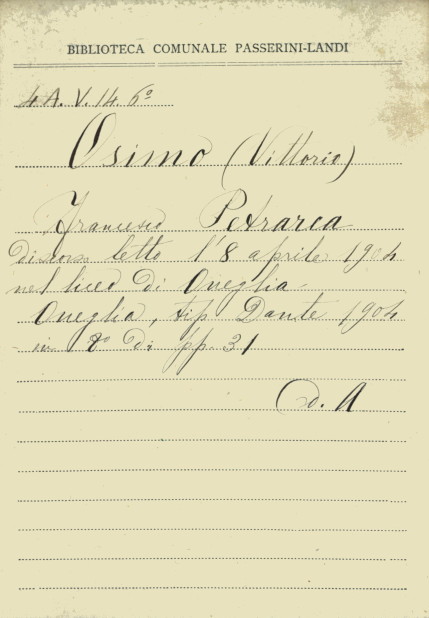 BIBLIOTECA COMUNALE PASSERINI-LANDI
4 A. V. 14. 6º
Osimo (Vittorio)
Francesco Petrarca
discorso letto l'8 aprile 1904
nel liceo di Oneglia -
Oneglia, tip Dante 1904
- in 8º di pp. 31
D. A